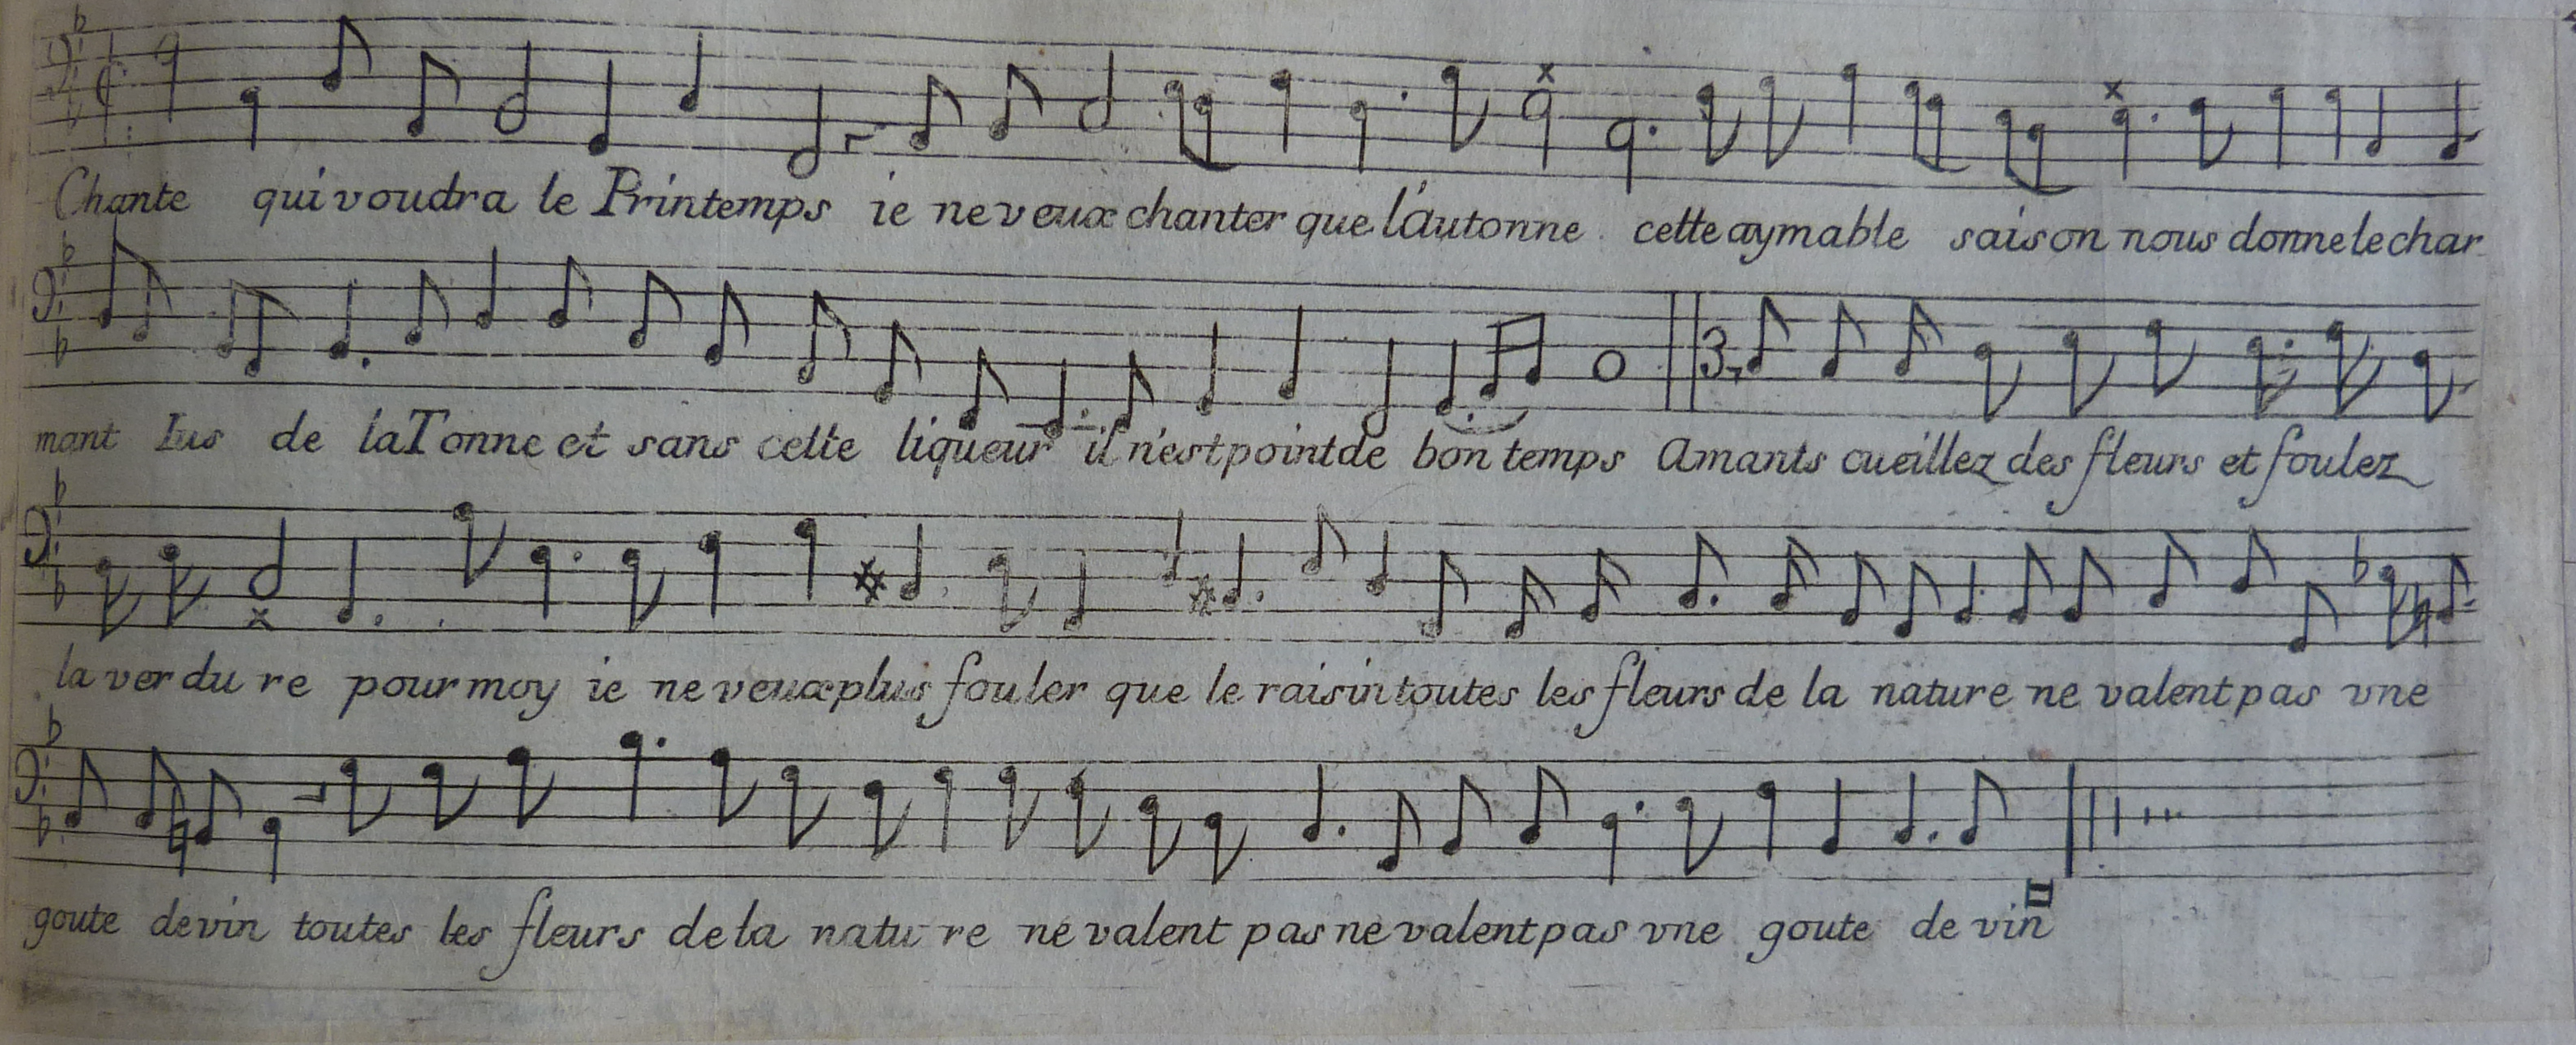 Chante qui voudra le Printemps ie ne veux chanter que l'autonne cette aymable saison nous donne le char
mant Ius de la Tonne et sans cette liqueur il n'est point de bon temps Amants cueillez des fleurs et foulez
la verdu re pour moy ie ne veux plus fouler que le raisin toutes les fleurs de la nature ne valent pas vne
goute de vin toutes les fleurs de la natu re ne valent pas ne valent pas vne goute de vin